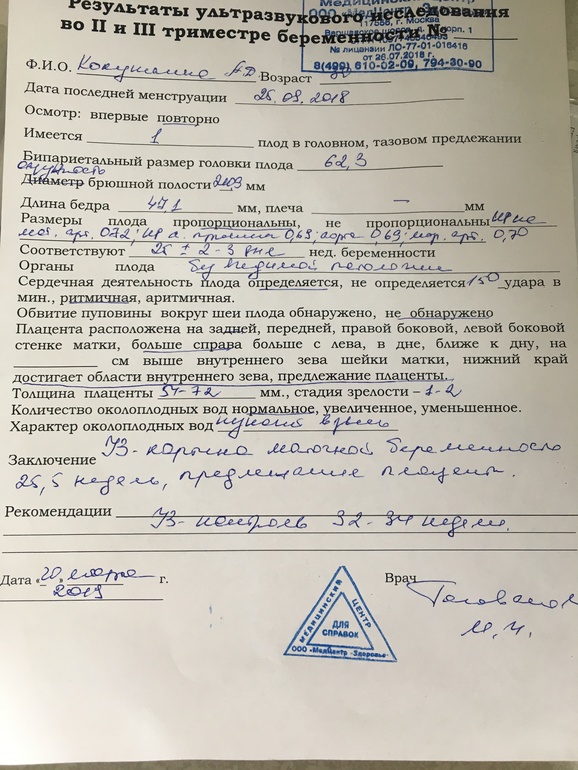 Результаты ультразвукового исследования
во II и III триместре беременности №
Медицинский центр
117588, г. Москва
№ лицензии ЛО-77-01-016416
от 26.07.2018 г.
8(499) 610-02-09, 794-30-90
Ф.И.О. А.Д. Возраст
Дата последней менструации 25.09.2018
Осмотр: впервые повторно
Имеется 1 плод в головном, тазовом предлежании
Бипариетальный размер головки плода 62,3
окружность
Диаметр брюшной полости 203 мм
Длина бедра 47,1 мм, плеча — мм
Размеры плода пропорциональны, не пропорциональны ИР
арт. 0,72; ИР а. пуповины 0,69; аорта 0,69; мар. арт. 0,70
Соответствуют 25 ± 2-3 дня нед. беременности
Органы плода без видимой патологии
Сердечная деятельность плода определяется, не определяется 150 удара в
мин., ритмичная, аритмичная.
Обвитие пуповины вокруг шеи плода обнаружено, не обнаружено
Плацента расположена на задней, передней, правой боковой, левой боковой
стенке матки, больше справа больше с лева, в дне, ближе к дну, на
см выше внутреннего зева шейки матки, нижний край
достигает области внутреннего зева, предлежание плаценты.
Толщина плаценты мм., стадия зрелости – 1-2
Количество околоплодных вод нормальное, увеличенное, уменьшенное.
Характер околоплодных вод взвесь
Заключение УЗ-картина маточной беременности
25,5 недель, предлежание плаценты.
Рекомендации УЗ-контроль 32-34 недели.
Дата «20» марта г.
2019
Врач
МЕДИЦИНСКИЙ ЦЕНТР
ДЛЯ
СПРАВОК
ООО «МедЦентр -Здоровье»